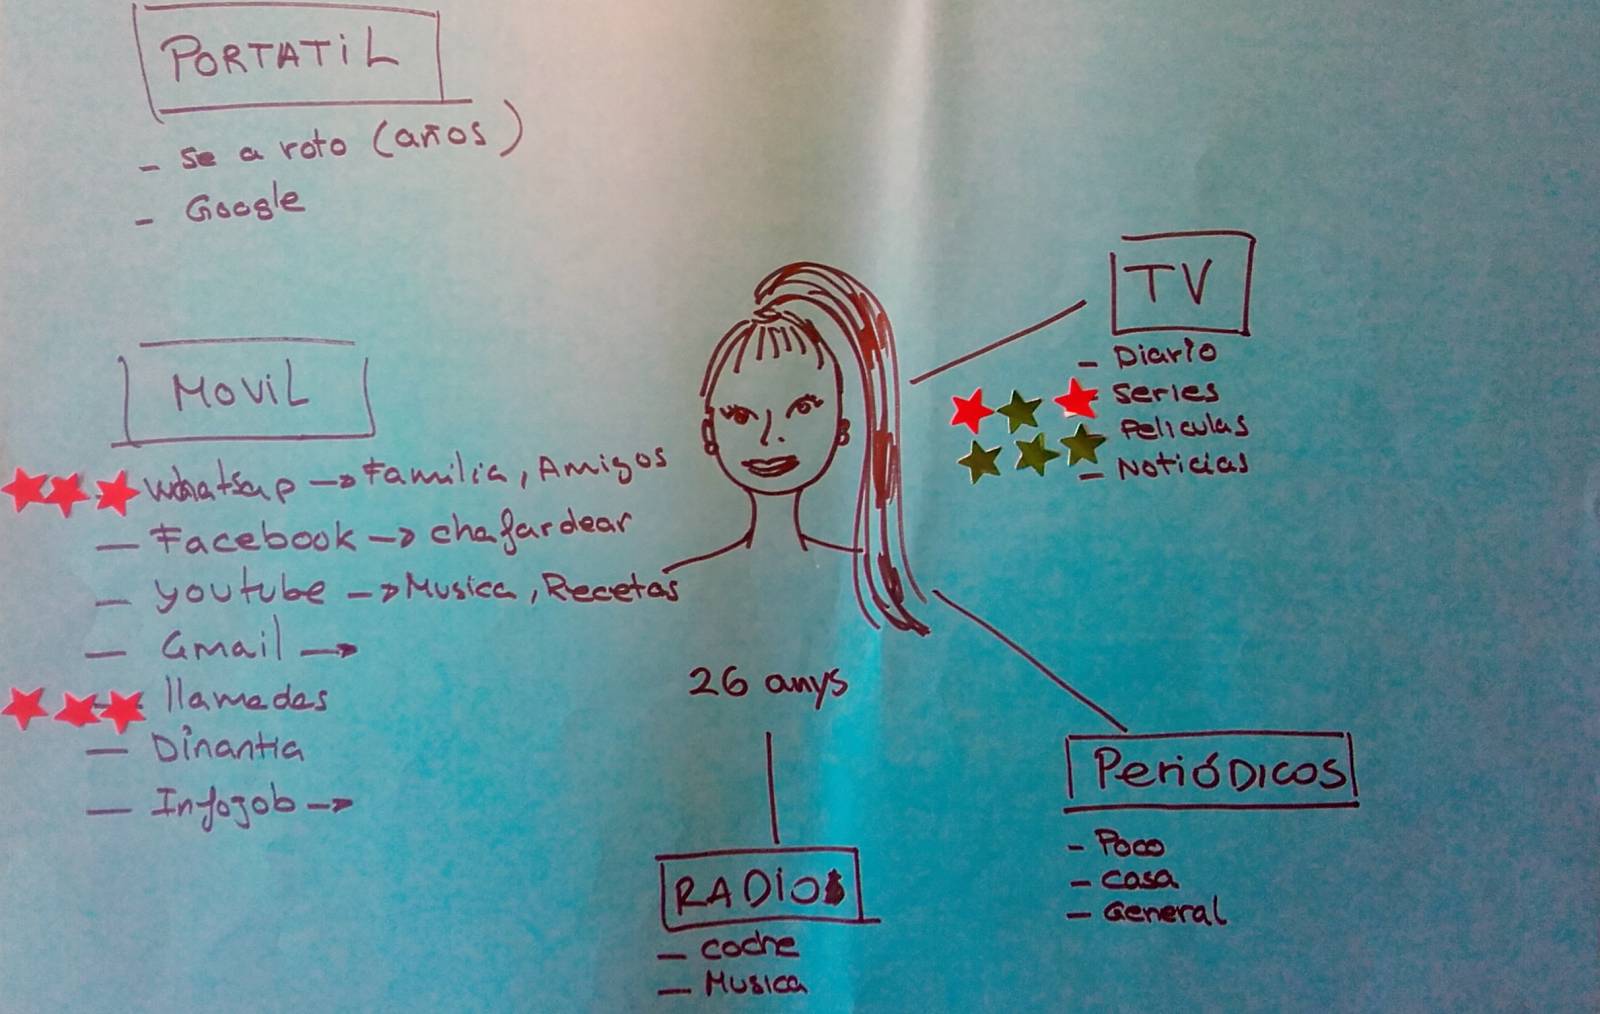 PORTATIL
- se a roto (años)
- Google
MOVIL
whatsap → Familia, Amigos
- Facebook → chafardear
- youtube → Musica, Recetas
- Gmail →
- llamadas
- Dinantia
- Infojob →
TV
- Diario
- Series
- Peliculas
- Noticias
26 anys
RADIOS
- coche
- Musica
PerióDICOS
- Poco
- casa
- General